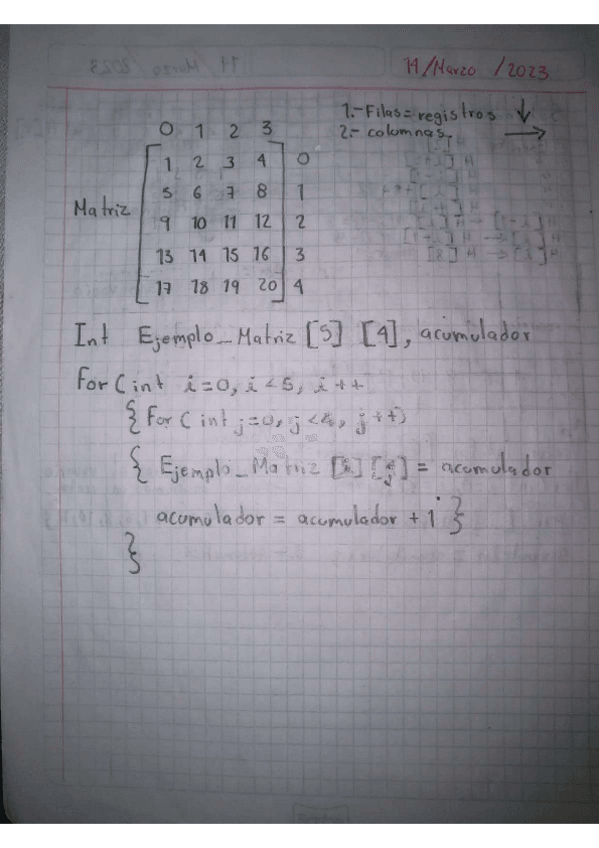 14/Marzo /2023
1.-Filas=registros ↓
2.- columnas. →
0 1 2 3
1 2 3 4 0
5 6 7 8 1
Matriz
9 10 11 12 2
13 14 15 16 3
17 18 19 20 4
Int Ejemplo_Matriz [5] [4], acumulador
For( int i=0, i<5, i++
{ For( int j=0, j<4, j++)
{ Ejemplo_Matriz [i] [j] = acumulador
acumulador = acumulador + 1 }
}